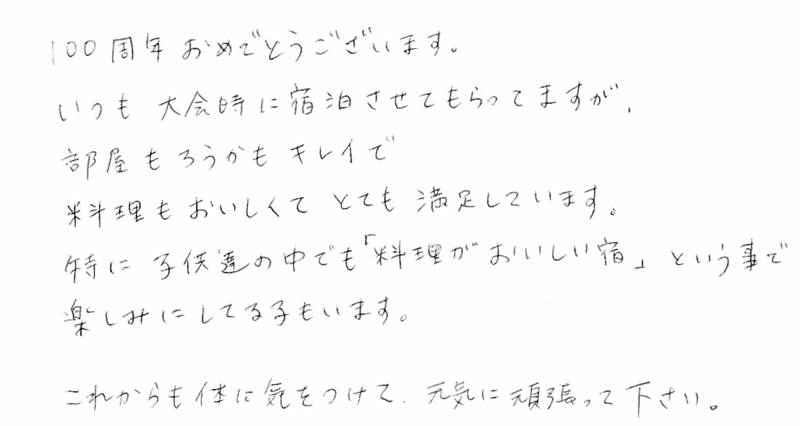 100周年おめでとうございます。
いつも大会時に宿泊させてもらってますが、
部屋もろうかもキレイで
料理もおいしくてとても満足しています。
特に子供達の中でも「料理がおいしい宿」という事で
楽しみにしてる子もいます。
これからも体に気をつけて、元気に頑張って下さい。